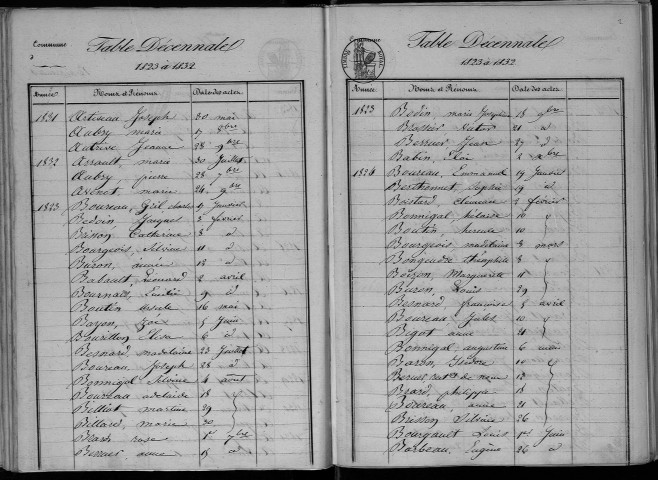 Commune
Table Décennale
à
1823 à 1832
Années Noms et Prénoms Dates des actes
1831 Artiseau Joseph 30 mai
Aubry marie 17 8bre
Autrive Jeanne 28 9bre
1832 Assault marie 30 Juillet
Aubry pierre 28 7bre
Axenet marie 24 9bre
1823 Boureau charles 17 Janvier
Bedoin Jacques 3 février
Catherine 8 d
Bourgeois Silvine 11 d
Buron 12 d
Babault Léonard 2 avril
Bournais Emilie 9 d
Boutin Ursule 16 mai
Bazon Zoé 5 Juin
Bourillon Elisa 6 d
Besnard madelaine 23 Juillet
Boureau Joseph 28 d
Bonnigal Silvine 4 aout
Boureau adelaide 18
Billiot martine 29
Billard marie 30
rose 1er 7bre
Bernier anne 15 d
2
Commune
Table Décennale
1823 à 1832
Années Noms et Prénoms Dates des actes
1823 Bedin marie Joseph 18 9bre
Brassier 21 d
Bernier Jean 27 d
Babin Eloi 2 xbre
1824 Boureau Emmanuel 17 Janvier
Berthonnet 19 d
Bastard clemence 2 février
Bonnigal hilaire 10 y
Boutin hercule 10 y
Bourgeois madelaine 3 mars
théophile 8 y
Boizon Marguerite 11 y
Buron Louis 29
Besnard françoise 5 avril
Boureau Jules 10 y
Bigot anne 21
Bonnigal augustine 6 mai
Baron Isidore 10 y
12
Brard philippe 18
Boureau anne 21
Brisson Silvine 26
Bourgault Louis 1er Juin
Barbeau Eugène 26 d